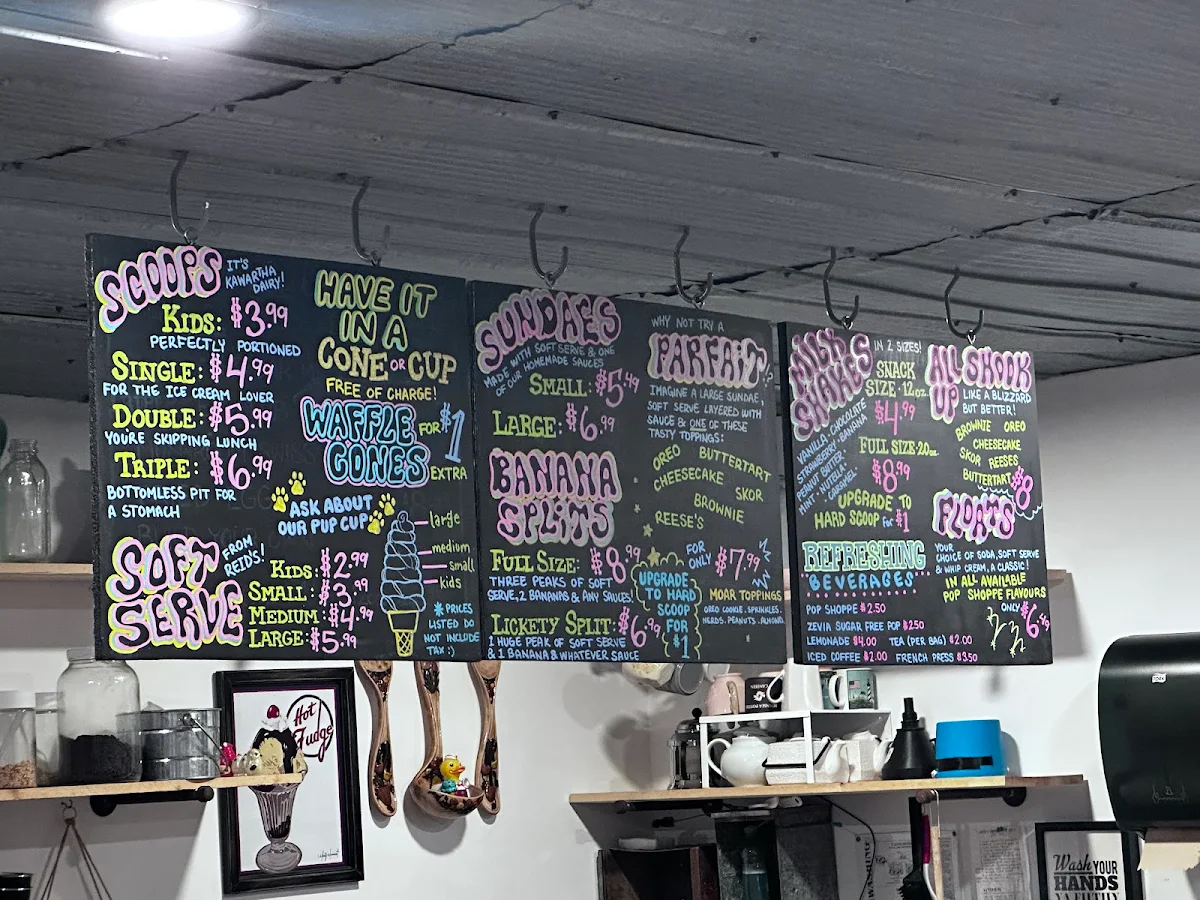 SCOOPS
IT'S
KAWARTHA
DAIRY!
KIDS: $3.99
PERFECTLY PORTIONED
SINGLE: $4.99
FOR THE ICE CREAM LOVER
DOUBLE: $5.99
YOU'RE SKIPPING LUNCH
TRIPLE: $6.99
BOTTOMLESS PIT FOR
A STOMACH
HAVE IT
IN A
CONE OR CUP
FREE OF CHARGE!
WAFFLE
CONES
FOR $1
EXTRA
ASK ABOUT
OUR PUP CUP
SOFT
SERVE
FROM
REID'S!
KIDS: $2.99
SMALL: $3.99
MEDIUM: $4.99
LARGE: $5.99
large
medium
small
kids
*PRICES
LISTED DO
NOT INCLUDE
TAX :)
SUNDAES
MADE WITH SOFT SERVE & ONE
OF OUR HOMEMADE SAUCES
SMALL: $5.49
LARGE: $6.99
BANANA
SPLITS
FULL SIZE: $8.99
THREE PEAKS OF SOFT
SERVE, 2 BANANAS & ANY SAUCES!
LICKETY SPLIT: $6.99
1 HUGE PEAK OF SOFT SERVE
& 1 BANANA & WHATEVER SAUCE
WHY NOT TRY A
PARFAIT?
IMAGINE A LARGE SUNDAE,
SOFT SERVE LAYERED WITH
SAUCE & ONE OF THESE
TASTY TOPPINGS:
OREO BUTTERTART
CHEESECAKE SKOR
BROWNIE
REESE'S
FOR
ONLY $7.99
UPGRADE
TO HARD
SCOOP
FOR
$1
MOAR TOPPINGS
OREO COOKIE. SPRINKLES.
NERDS. PEANUTS. ALMOND.
MILK
SHAKES
IN 2 SIZES!
SNACK
SIZE-12oz
$4.99
FULL SIZE-20oz
$8.99
UPGRADE TO
HARD SCOOP for $1
VANILLA. CHOCOLATE
STRAWBERRY. BANANA
PEANUT BUTTER
MINT. NUTELLA.
CARAMEL
ALL SHOOK
UP
LIKE A BLIZZARD
BUT BETTER!
BROWNIE OREO
CHEESECAKE
SKOR REESES
BUTTERTART $8
FLOATS
YOUR
CHOICE OF SODA, SOFT SERVE
& WHIP CREAM, A CLASSIC!
IN ALL AVAILABLE
POP SHOPPE FLAVOURS
ONLY $6.49
REFRESHING
BEVERAGES
POP SHOPPE $2.50
ZEVIA SUGAR FREE POP $2.50
LEMONADE $4.00 TEA (PER BAG) $2.00
ICED COFFEE $2.00 FRENCH PRESS $3.50
Hot
Fudge
Wash YOUR
HANDS